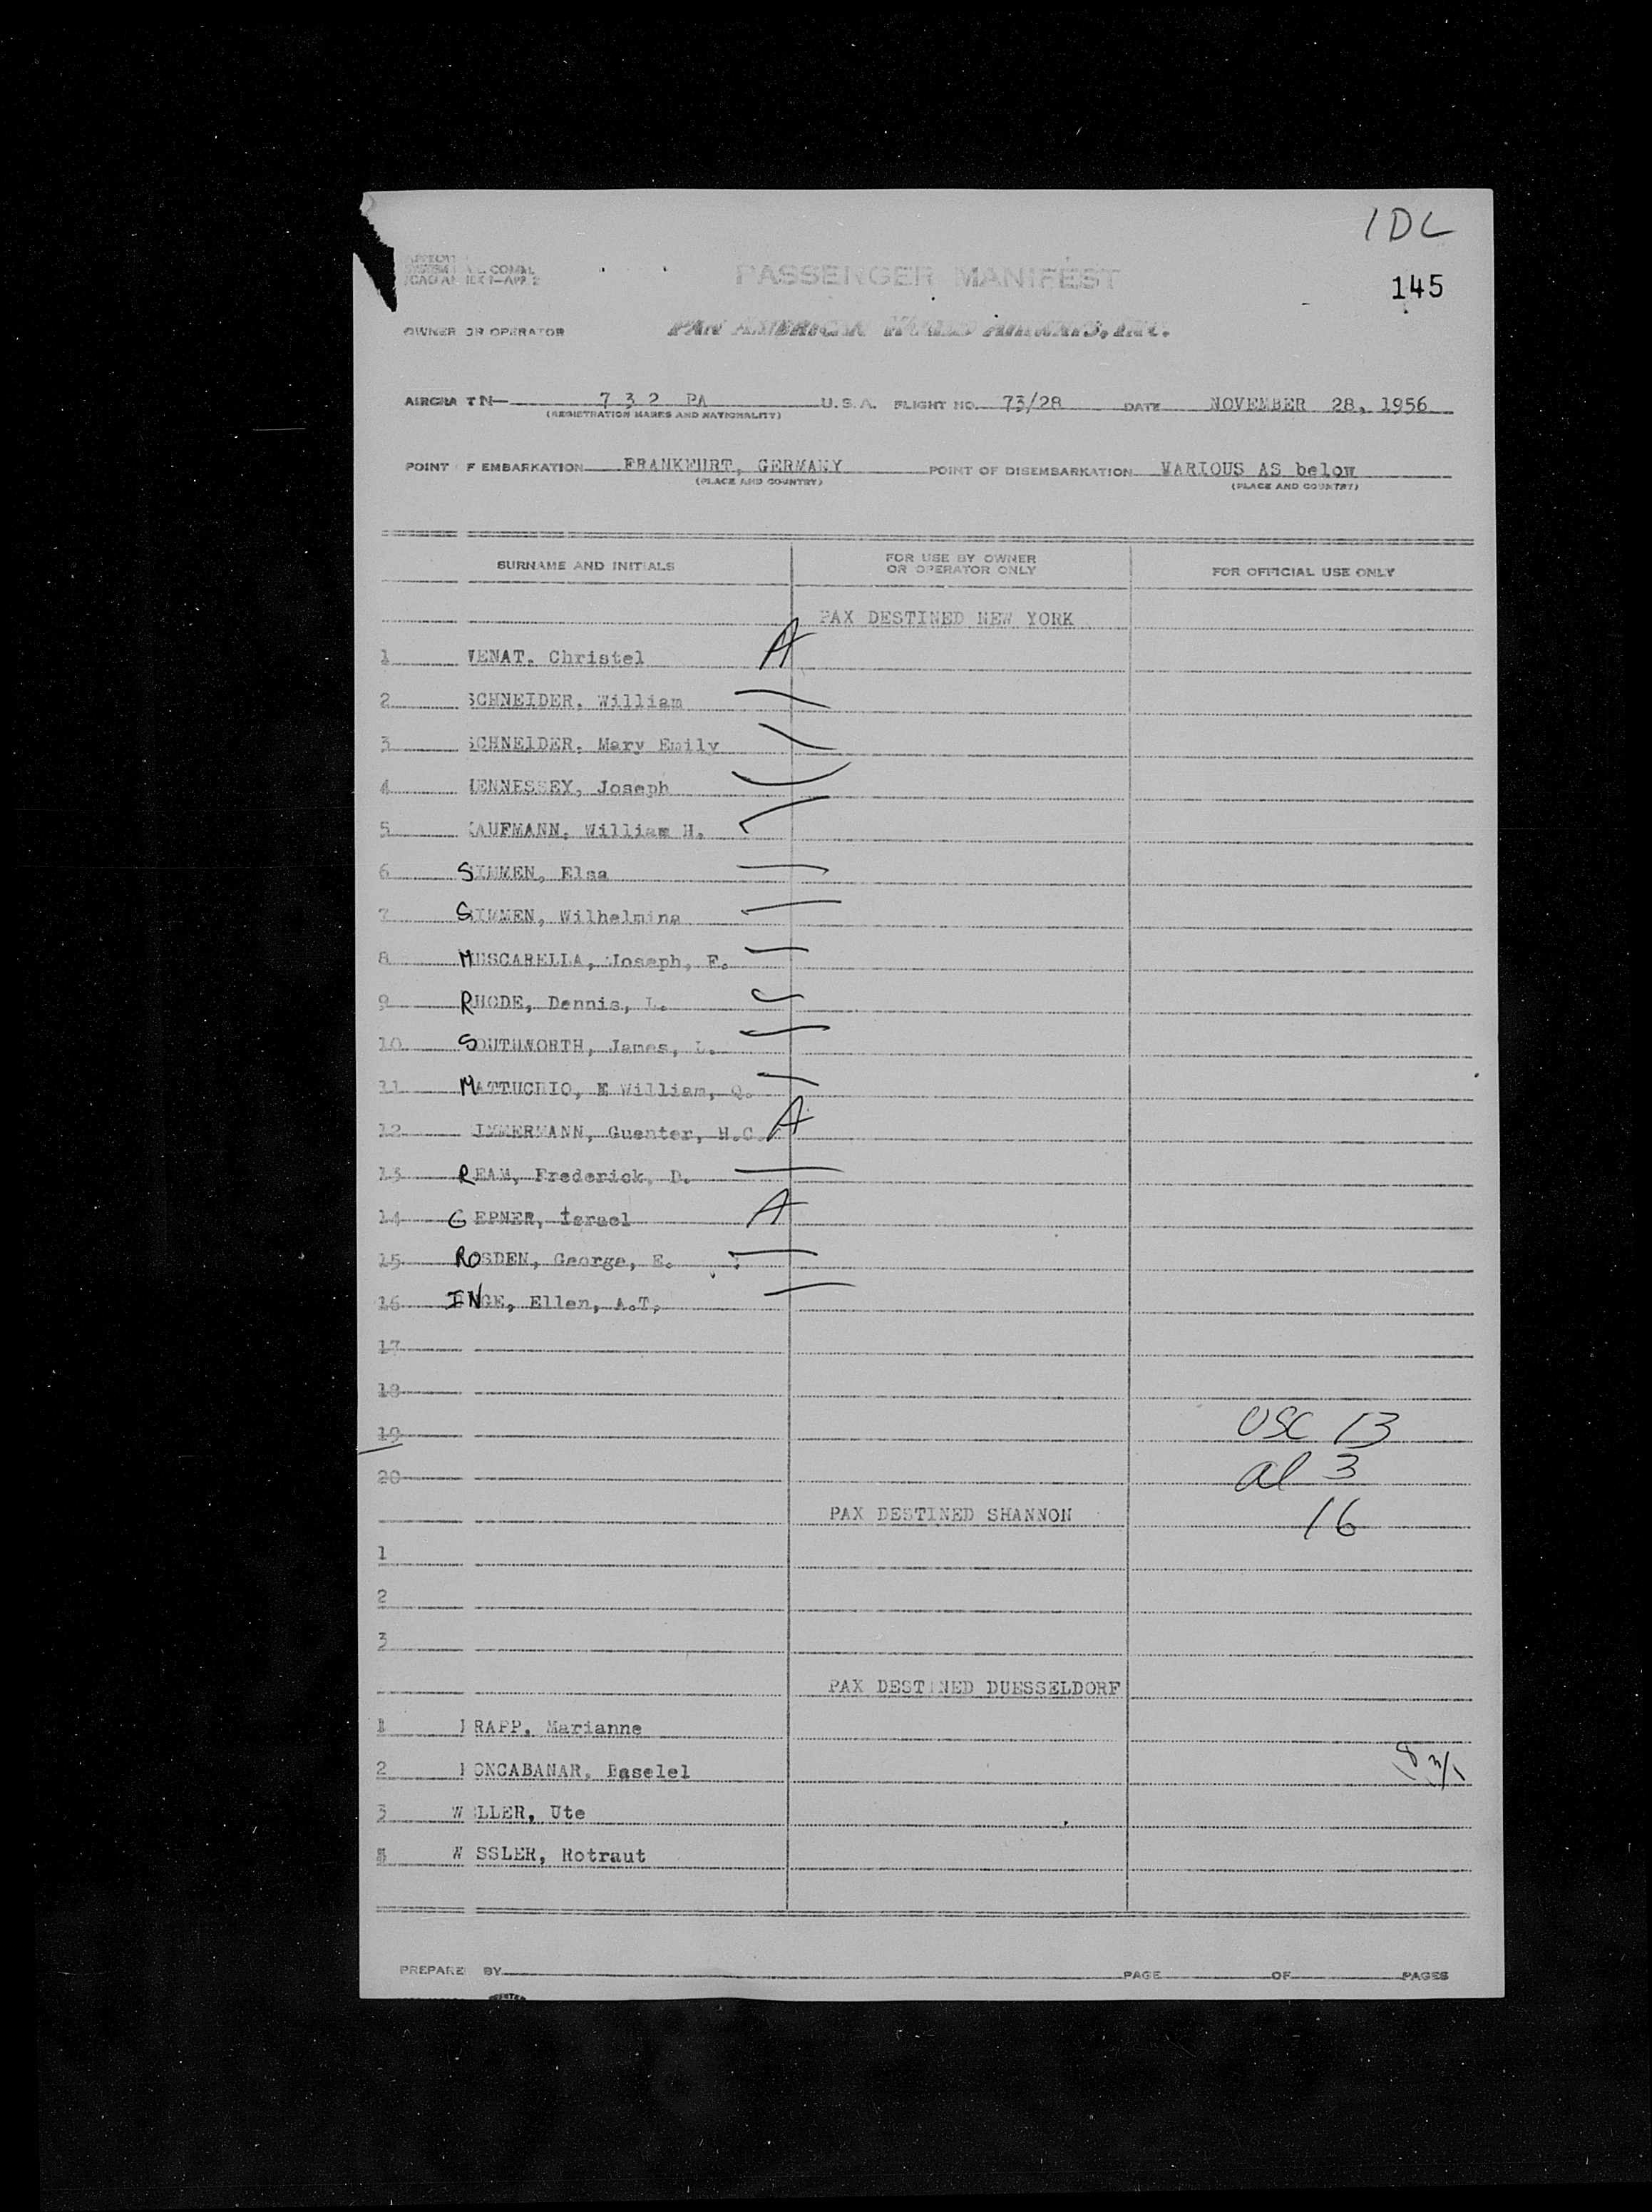 1DC
PASSENGER MANIFEST
145
OWNER OR OPERATOR PAN AMERICAN WORLD AIRWAYS, INC.
AIRCRA T N— 7 3 2 PA U.S.A. FLIGHT NO. 73/28 DATE NOVEMBER 28, 1956
(REGISTRATION MARKS AND NATIONALITY)
POINT F EMBARKATION FRANKFURT, GERMANY POINT OF DISEMBARKATION VARIOUS AS below
(PLACE AND COUNTRY) (PLACE AND COUNTRY)
SURNAME AND INITIALS FOR USE BY OWNER OR OPERATOR ONLY FOR OFFICIAL USE ONLY
PAX DESTINED NEW YORK
1 WENAT, Christel A
2 SCHNEIDER, William
3 SCHNEIDER, Mary Emily
4 HENNESSEY, Joseph
5 KAUFMANN, William H.
6 SIMMEN, Elsa
7 SIMMEN, Wilhelmina
8 MUSCARELLA, Joseph, F.
9 RHODE, Dennis, L.
10 SOUTHWORTH, James, L.
11 MATTUCHIO, E William, Q.
12 IMMERMANN, Guenter, H.C. A
13 REAM, Frederick, D.
14 GEPNER, Israel A
15 ROSDEN, George, E.
16 INGE, Ellen, A.T.
17
18
19 USC 13
20 al 3
PAX DESTINED SHANNON 16
1
2
3
PAX DESTINED DUESSELDORF
1 RAPP, Marianne
2 ONCABANAR, Baselel
3 W LLER, Ute
W SSLER, Rotraut
PREPARE BY PAGE OF PAGES